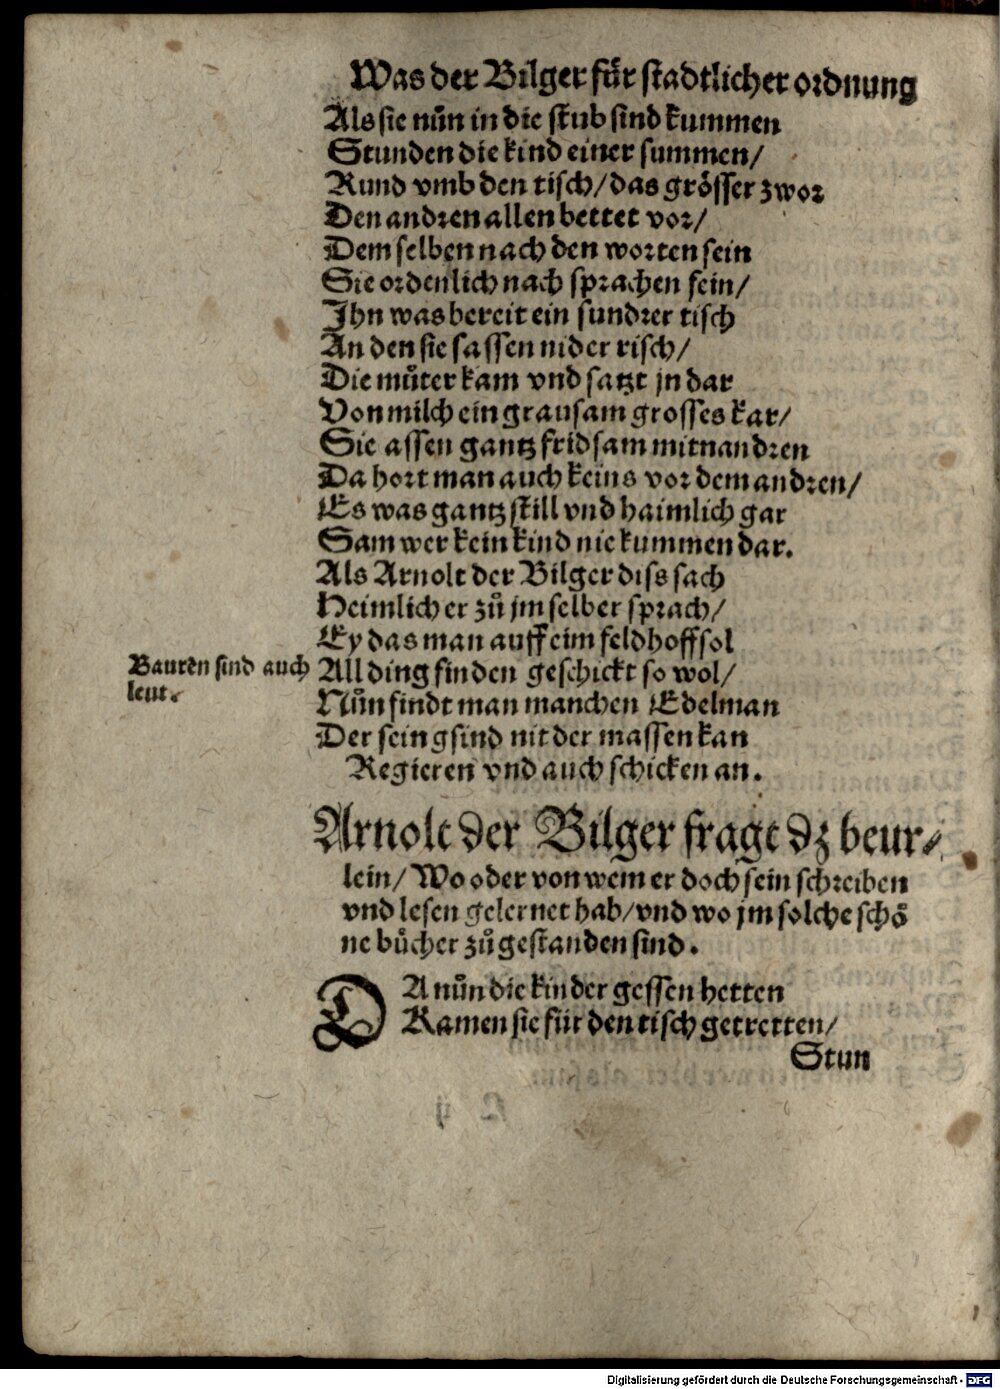 Was der Bilger für stadtlicher ordnung
Als sie nůn in die stub sind kummen
Stunden die kind einer summen/
Rund vmb den tisch/das grösser zwor
Den andren allen bettet vor/
Dem selben nach den worten sein
Sie ordenlich nach sprachen fein/
Ihn was bereit ein sundrer tisch
An den sie sassen nider risch/
Die můter kam vnd satzt jn dar
Von milch ein grausam grosses kar/
Sie assen gantz fridsam mitnandren
Da hort man auch keins vor dem andren/
Es was gantz still vnd haimlich gar
Sam wer kein kind nie kummen dar.
Als Arnolt der Bilger diss sach
Heimlich er zů jm selber sprach/
Ey das man auff eim feldhoff sol
All ding finden geschickt so wol/
Bauren sind auch
leut.
Nůn findt man manchen Edelman
Der sein gsind nit der massen kan
Regieren vnd auch schicken an.
Arnolt der Bilger fragt dz beur⸗
lein/ Wo oder von wem er doch sein schreiben
vnd lesen gelernet hab/vnd wo jm solche schö
ne bůcher zů gestanden sind.
DA nůn die kinder gessen hetten
Kamen sie für den tisch getretten/
Stun
Digitalisierung gefördert durch die Deutsche Forschungsgemeinschaft - DFG